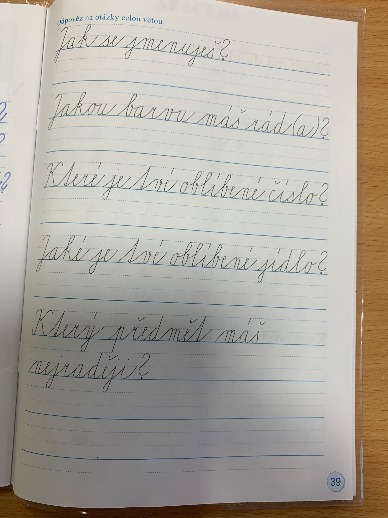 Odpověz na otázky celou větou.
Jak se jmenuješ?
Jakou barvu máš rád(a)?
Které je tvé oblíbené číslo?
Jaké je tvé oblíbené jídlo?
Který předmět máš
nejraději?
39